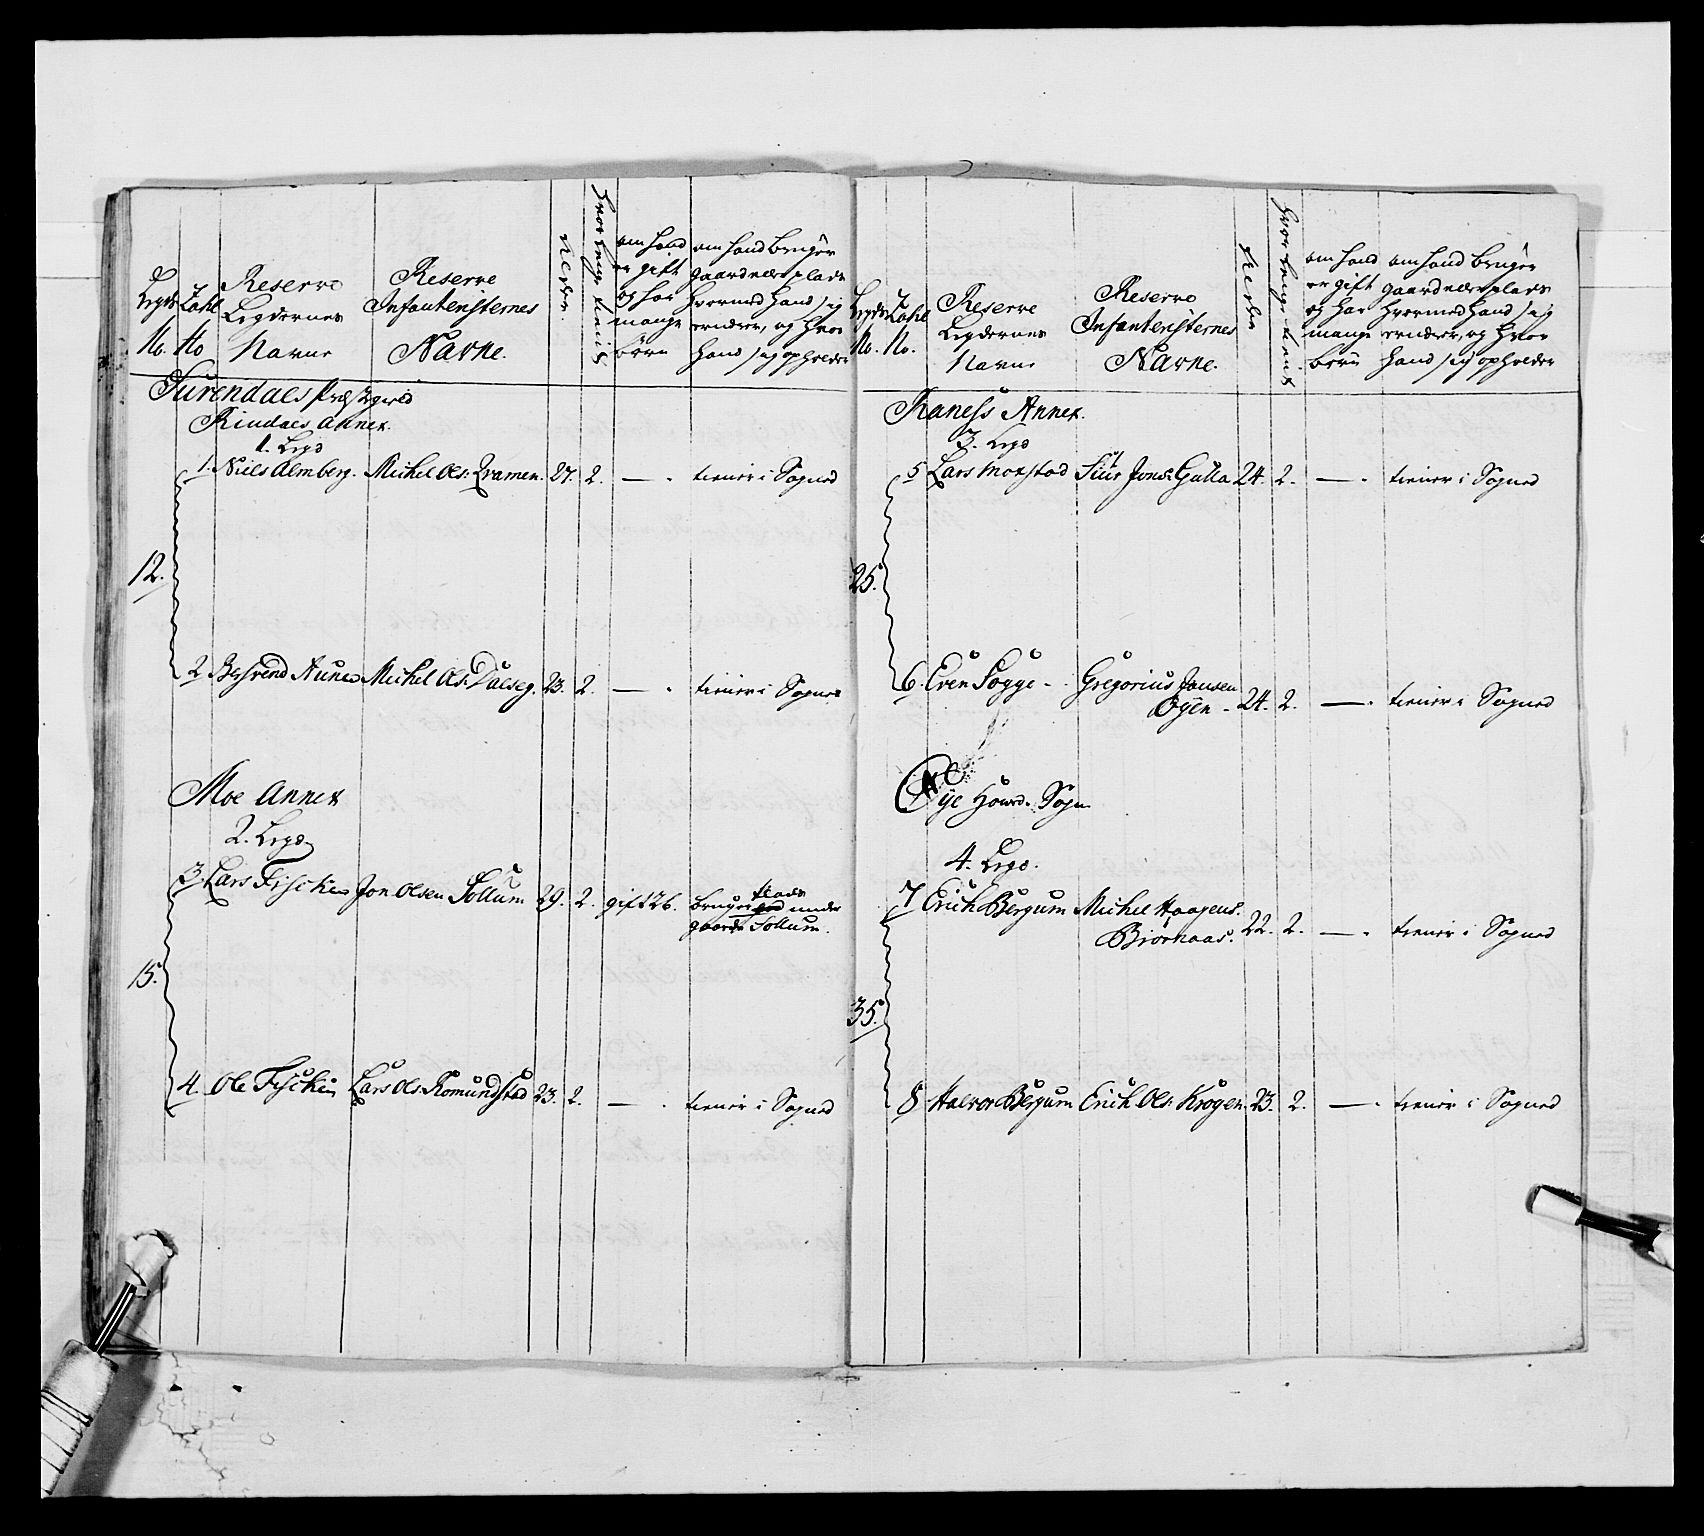 Legds No.
Tahl No
Reserve Legdernes Navne
Reserve Infanteristernes Navne.
hvor lenge tient
om hand er gift og har mange børn
om hand bruger gaard eller plads hvormed hand sig ernærer, og hvor hand sig opholder
Surendals Præstegield
Rindals Annex.
1. Legd
12.
1. Niels Almberg. Michel Ols: Qvamen. 27. 2. — . tiener i Sogned
2 Michel Ols: Dalseg. 23. 2. — . tiener i Sognet
Moe Annex
2. Legd
15.
3. Lars Fiskien Jon Olsen Sollum 29. 2. gift 26. bruger plads under
gaarden Sollum.
4. Ole Fiskien Lars Ols: Romundstad 23. 2. — . tiener i Sogned
Legds No.
Tahl No.
Reserve Legdernes Navne
Reserve Infanteristernes Navne.
hvor lenge tient
om hand er gift og har mange børn
om hand bruger gaard eller plads hvormed hand sig ernærer, og hvor hand sig opholder
Raness Annex.
3. Legd
25.
5 Lars Siur Jons: Gulla 24. 2. — . tiener i Sogned
6. Even Sogge - Gregorius Jonsen
Øyen - 24. 2. — . tiener i Sogned
Øye Hoved Sogn
4. Legd.
35.
7 Erich Bergum Michel Haagens:
Biørnaas. 22. 2. — . tiener i Sogned
8 Halvor Bergum Erich Ols: Krogen 23. 2. — . tiener i Sogned